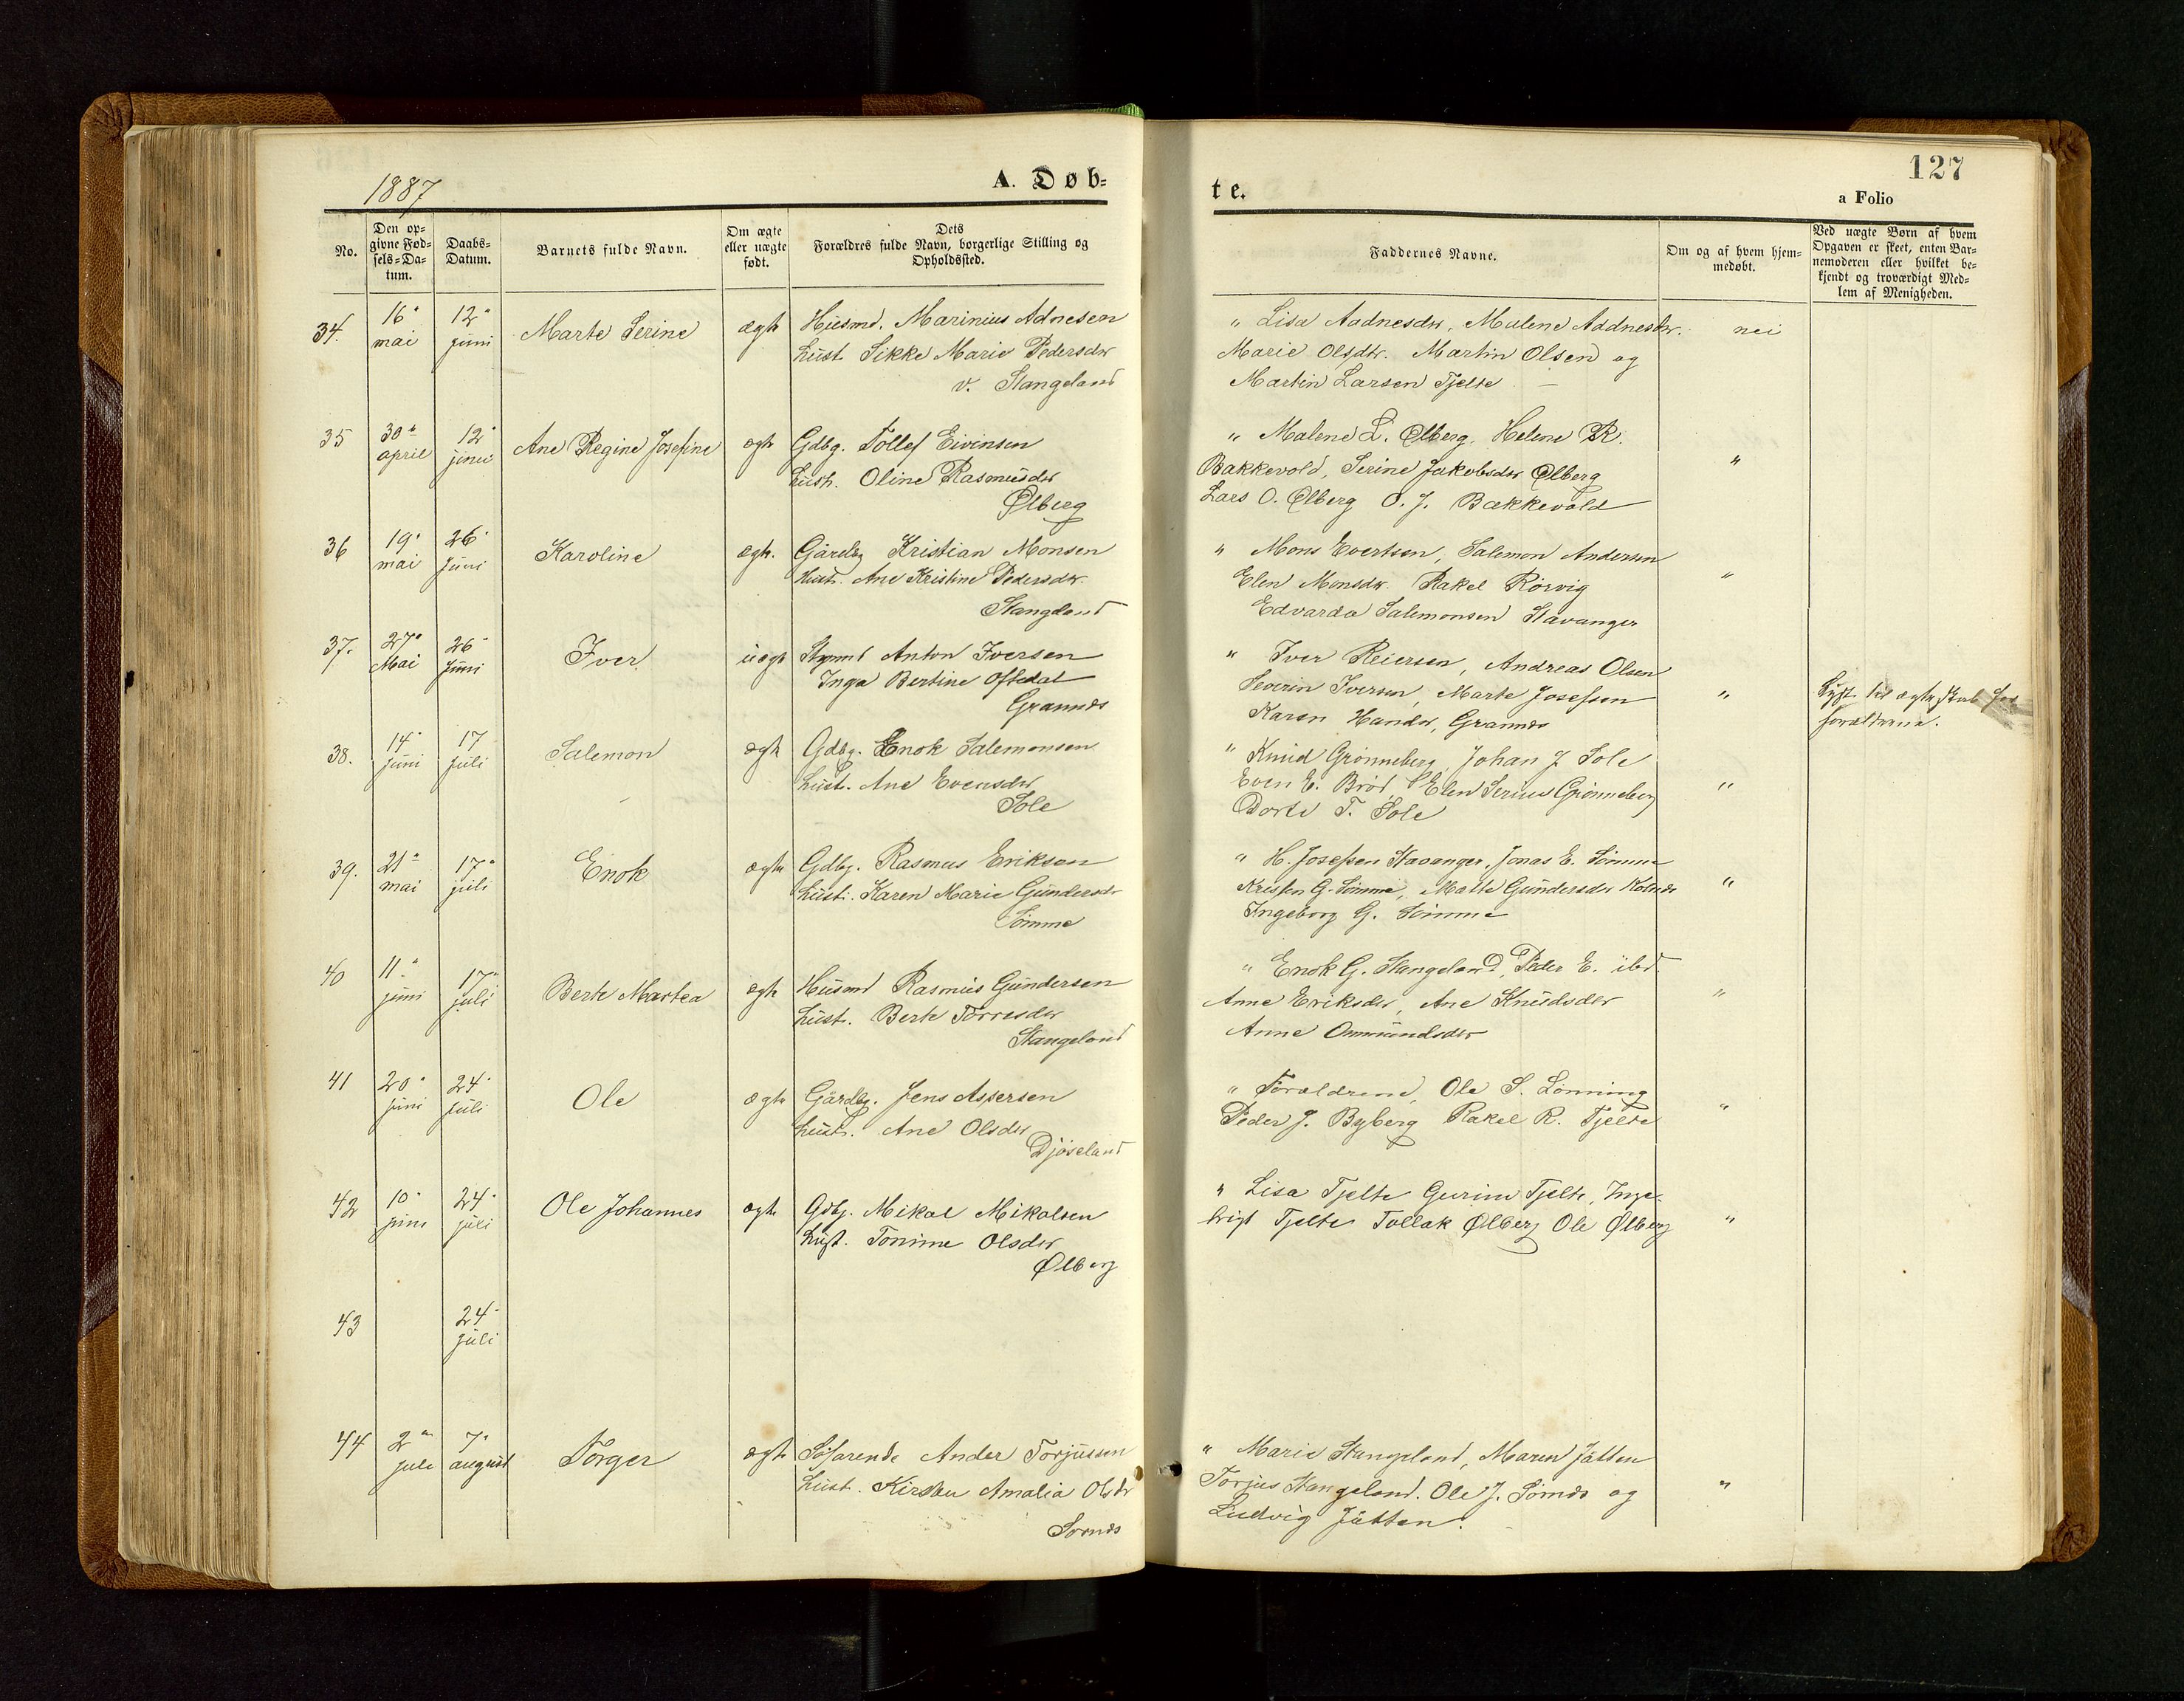 1887
A. Døb=
te.
127
a Folio
No.
Den op=
givne Fød=
sels=Da=
tum.
Daabs=
Datum.
Barnets fulde Navn.
Om ægte
eller uægte
født.
Dets
Forældres fulde Navn, borgerlige Stilling og
Opholdssted.
Faddernes Navne.
Om og af hvem hjem=
medøbt.
Ved uægte Børn af hvem
Opgaven er skeet, enten Bar=
nemoderen eller hvilket be=
kjendt og troværdigt Med=
lem af Menigheden.
34. 16 mai 12 juni Marte Serine ægte Husmd. Marinius Adnesen
Hust. Sikke Marie Pedersdtr
v. Stangeland
" Lisa Aadnesdtr, Malene Addnesdtr. nei
Marie Olsdtr. Martin Olsen og
Martin Larsen Tjelte —
35 30 april 12 juni Ane Regine Josefine ægte Gdbg. Tollef Eivinsen
Hust. Oline Rasmusdtr
Ølberg
" Malene L. Ølberg, Helene R.
Bakkevold, Serine Jakobsdtr Ølberg "
Lars O. Ølberg O. J. Bakkevold
36 19 mai 26 juni Karoline ægte. Gårdbg Kristian Monsen
Hust. Ane Kristine Pedersdtr.
Stangeland
" Mons Evertsen, Salemon Andersen
Elen Monsdtr. Rakel Rörvig "
Edvarda Salemonsen Stavanger
37. 27 Mai 26 Juni Iver uægte Anton Iversen
Inga Bertine Oftedal
Grannes
" Iver Reiersen, Andreas Olsen
Severin Iversen, Marte Josefsen "
Karen Hansdtr, Grannes
Lyst til ægteskab
forældrene.
38. 14 juni 17 juli Salemon ægte Gdbg. Enok Salemonsen
Hust. Ane Evensdtr
Sole
" Knud Grönneberg, Johan J Sole
Even E. Bröd Elen Serine Grönneberg "
Dorte T. Sole
39. 21 mai 17 juli Enok ægte Gdbg. Rasmus Eriksen
Hust. Karen Marie Gundersdtr
Sömme
" H. Josefsen Stavanger, Jonas E. Sömme
Kristen G. Sömme, Malte Gundersdtr Kolnes "
Ingeborg G. Sömme
40 11 juni 17 juli Berte Martea ægte Husmd Rasmus Gundersen
Hust. Berte Torresdtr
Stangeland
" Enok G. Stangeland, Peder E. ibd.
Anne Eriksdtr, Ane Knudsdtr "
Anne Ommundsdtr
41 20 juni 24 juli Ole ægte Gårdbg. Jens Assersen
Hust. Ane Olsdtr
Djöseland
" Forældrene, Ole S. Lönning
Peder J. Byberg Rakel R. Tjelte "
42 10 juni 24 juli Ole Johannes ægte Gdbg. Mikal Mikalsen
Hust. Tonime Olsdtr
Ølberg
" Lisa Tjelte Gurine Tjelte, Inge-
brigt Tjelte Tollak Ølberg Ole Ølberg "
43 24 juli
44 2 juli 7 august Torger ægte Söfarende Ander Torjussen
Hust. Kirsten Amalia Olsdtr
Sömes
" Marie Stangeland, Maren Jåtten
Torjus Stangeland. Ole J. Sömes og "
Ludvig Jåtten.